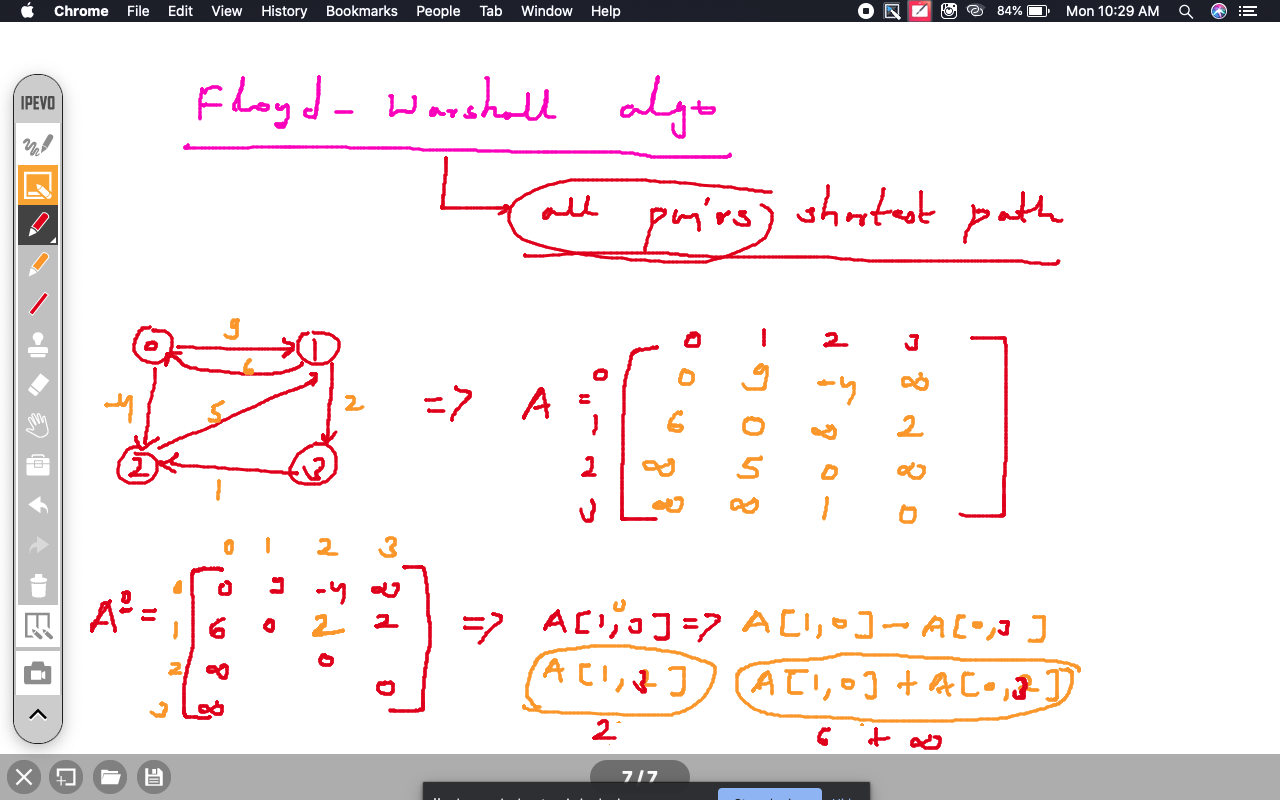 Chrome File Edit View History Bookmarks People Tab Window Help 84% Mon 10:29 AM
IPEVO
Floyd - Warshall algo
all pairs shortest path
9
0 1
6
-4 5 2
2 3
1
=> A =
0 1 2 3
0 0 9 -4 ∞
1 6 0 ∞ 2
2 ∞ 5 0 ∞
3 ∞ ∞ 1 0
0 1 2 3
A⁰ =
0 0 9 -4 ∞
1 6 0 2 2
2 ∞ 0
3 ∞ 0
=> A[1,3] => A[1,0] - A[0,3]
A[1,3] A[1,0] + A[0,3]
2 6 + ∞
7/7